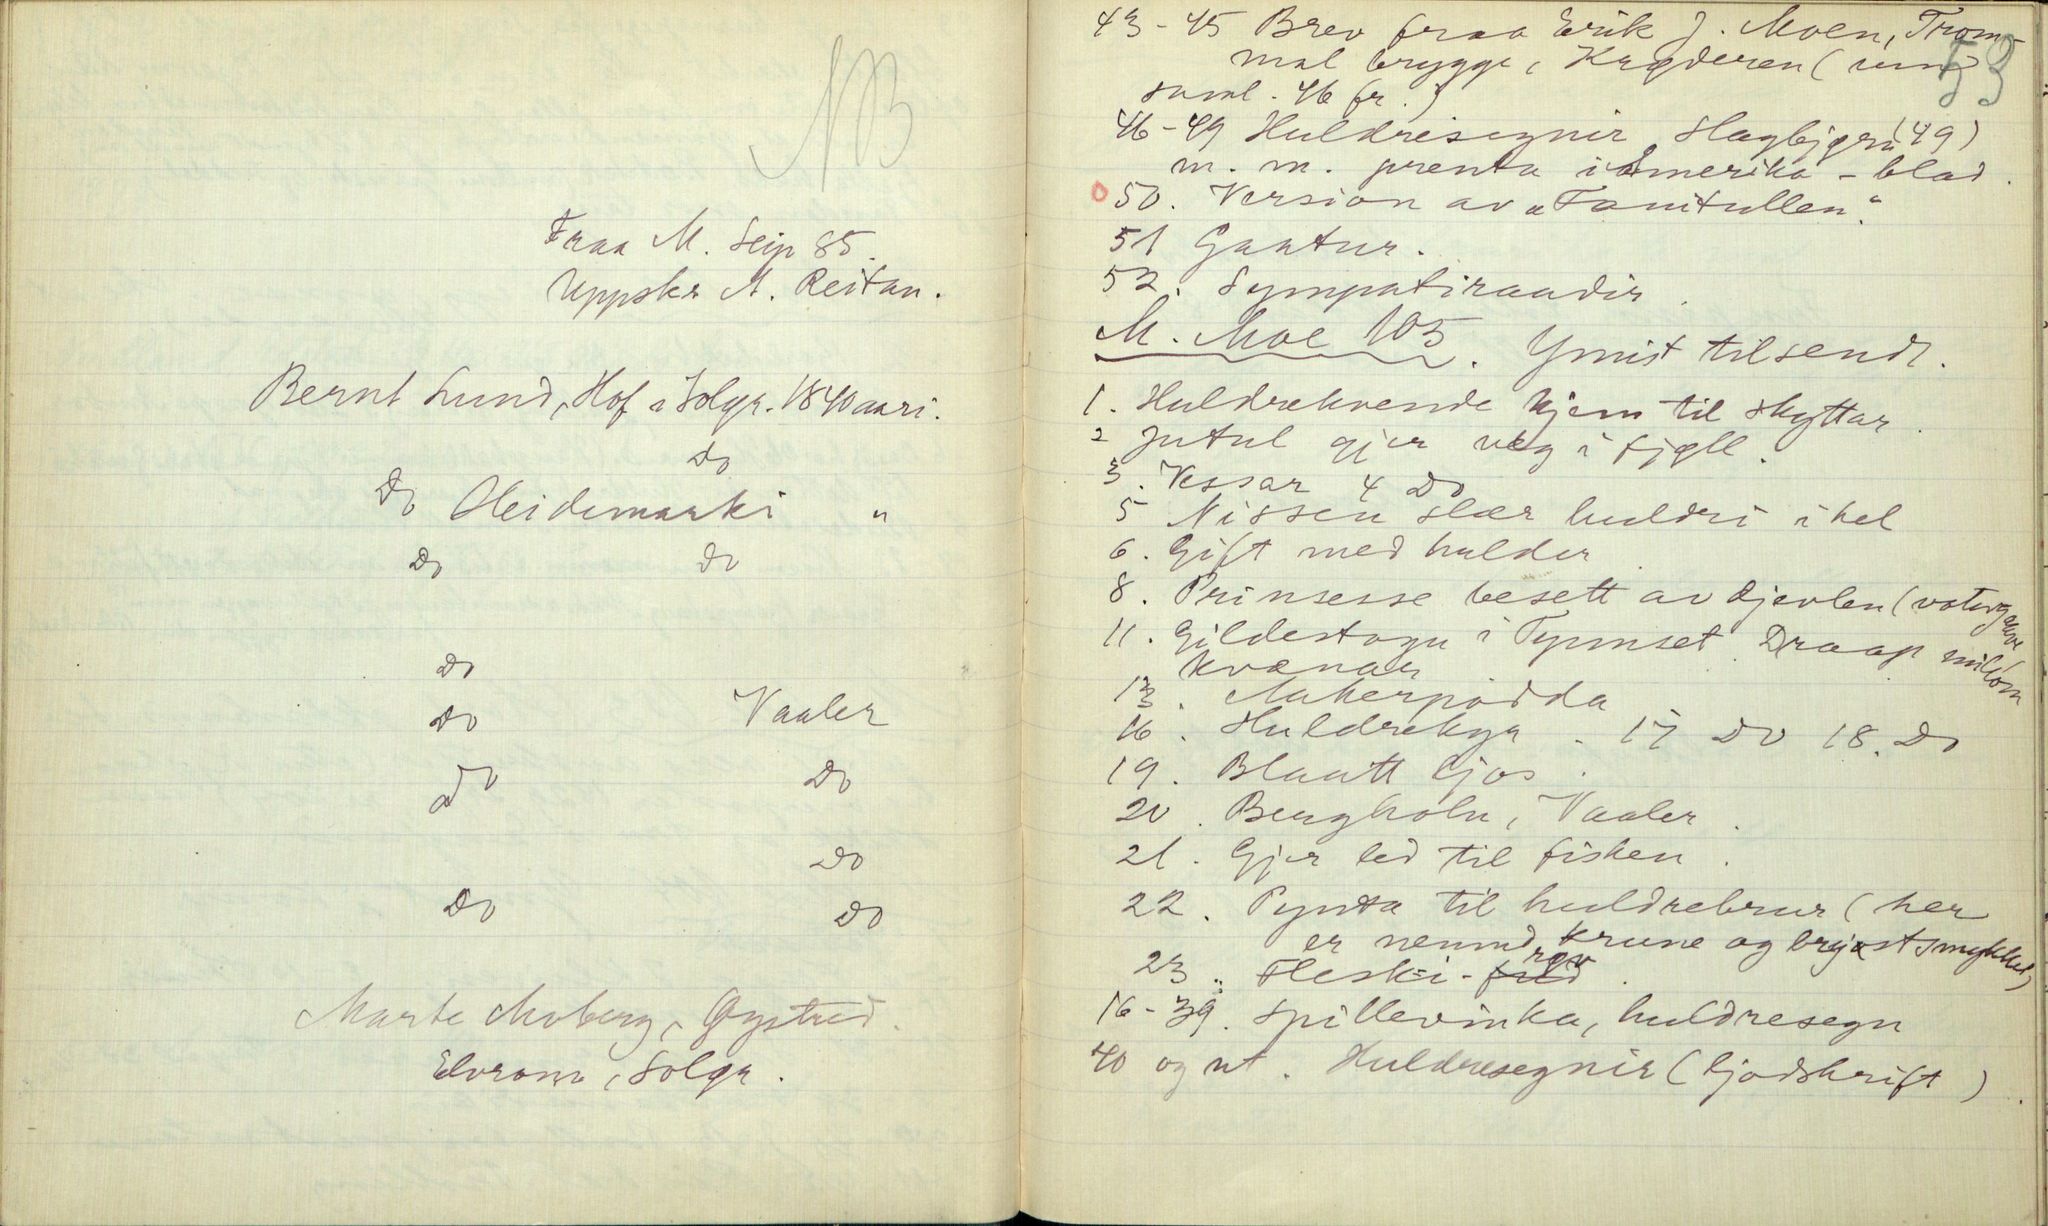 NB
Fraa M. Seip 85.
Uppskr A. Reitan.
Bernt Lund, Hof i Solør. 1840 aari.
Do
Do Heidemarki "
Do Do
Do
Do Vaaler
Do Do
Do
Do Do
Marte Moberg, Øystred.
Elvrom, Solør.
53
43-45 Brev fraa Erik J. Moen, Trom-
mal brygge, Krøderen (
saml. 46 fr.)
46-49 Huldresegnir, Slagbjørn (49)
m. m. prenta i Amerika-blad.
50. Version av "Fanitullen".
51 Gaatur.
52. Sympatiraadir.
M. Moe 105. Ymist tilsendt.
1. Huldrekvende kjem til skyttar.
2 Jutul gjer veg i fjøll.
3. Vessar 4 Do
5 Nissen slær huldri i hel
6. Gift med hulder
8. Prinsesse besett av djevlen (
11. Gildestogu i Tynset. Draap millom
kvænar
13. Aakerpadda
16. Huldrekyr. 17 Do 18. Do
19. Blaatt ljos.
20. Bergholn, Vaaler.
21. Gjer led til fisken.
22. Pynta til huldrebrur (her
er nemnd krune og brystsmykke)
23. Fleski-
røv
16-39. Spillevinka, huldresegn
40 og ut. Huldresegnir (ljodskrift).